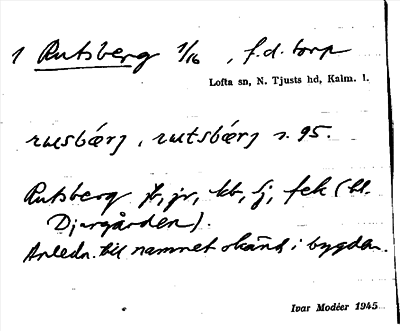 1 Rutsberg 1/16, f.d. torp
Lofta sn, N. Tjusts hd, Kalm. l.
rusbærj, rutsbærj s. 95.
Rutsberg jb, jr, kb, lj, fek (bl.
Djurgården).
Anledn. till namnet okänd i bygden.
Ivar Modéer 1945